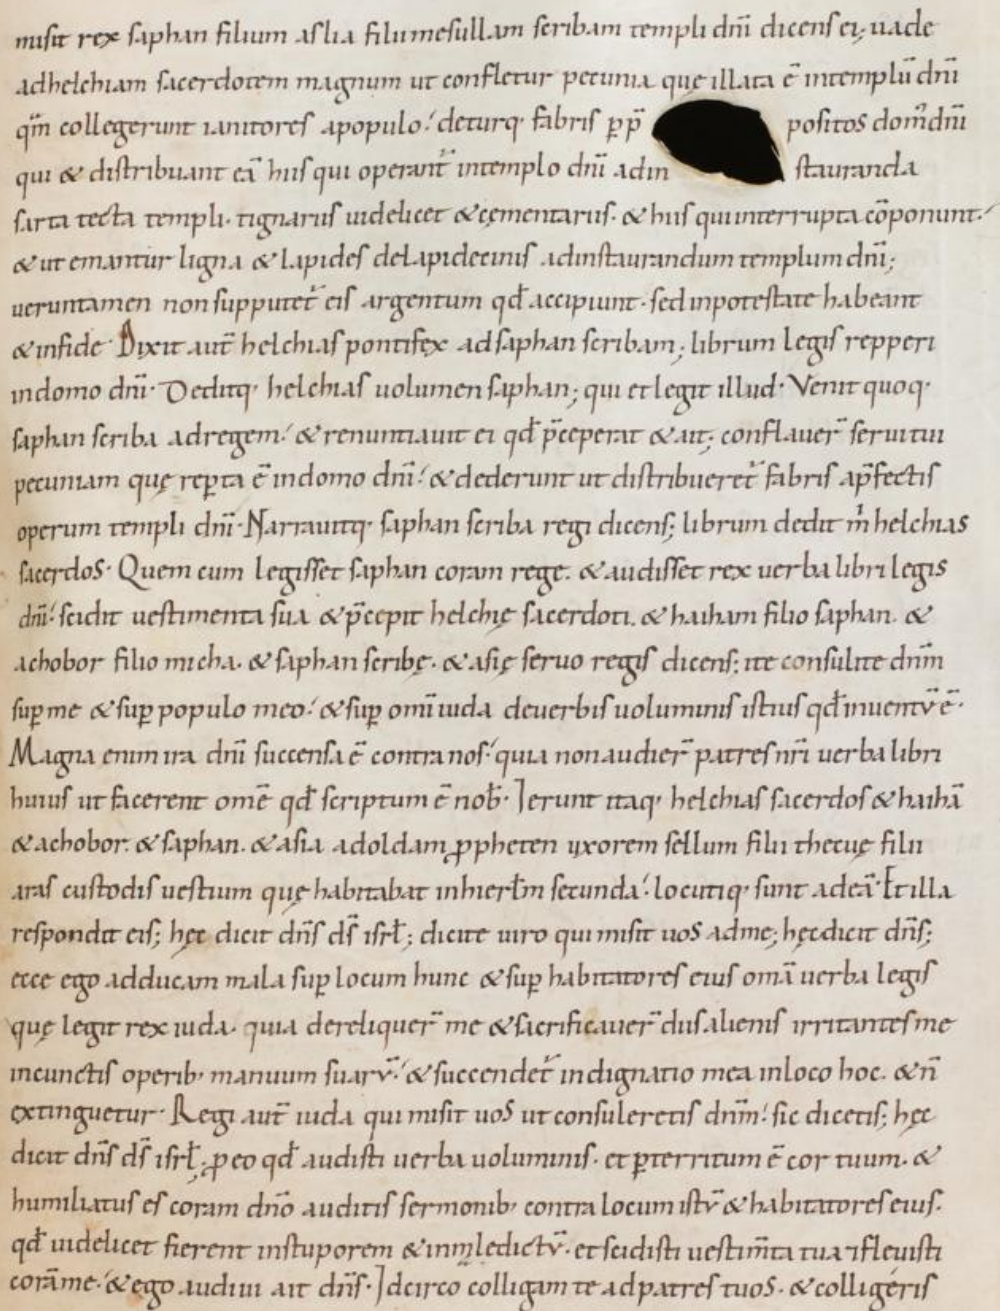 misit rex saphan filium aslia filii mesullam scribam templi dñi dicens ei; uade
ad helchiam sacerdotem magnum ut confletur pecunia quę illata ē in templū dñi
qm̄ collegerunt ianitores a populo; detur q; fabris p̲p̄ positos dom̄ dñi
qui & distribuant eā hiis qui operant̄ in templo dñi ad in stauranda
sarta tecta templi· tignariis uidelicet & cęmentariis· & hiis qui interrupta cōponunt·
& ut emantur ligna & lapides de lapidecinis ad instaurandum templum dñi;
ueruntamen non supputet̄ eis argentum qđ accipiunt· sed in potestate habeant
& in fide· Dixit aut̄ helchias pontifex ad saphan scribam; librum legis repperi
in domo dñi· Deditq· helchias uolumen saphan; qui et legit illud· Venit quoq·
saphan scriba ad regem; & renuntiauit ei qđ p̄ceperat & ait; conflauer̄ serui tui
pecuniam quę rep̲ta ē in domo dñi; & dederunt ut distribueret̄ fabris a p̄fectis
operum templi dñi· Narrauitq· saphan scriba regi dicens; librum dedit m̍ helchias
sacerdos· Quem cum legisset saphan coram rege. & audisset rex uerba libri legis
dñi; scidit uestimenta sua & p̄cepit helchię sacerdoti. & haiham filio saphan. &
achobor filio micha. & saphan scribę. & asię seruo regis dicens; ite consulite dn̄m
sup̲ me & sup̲ populo meo; & sup̲ omī iuda de uerbis uoluminis istius qđ inuentv̄ ē·
Magna enim ira dñi succensa ē contra nos; quia non audier̄ patres nr̄i uerba libri
huius ut facerent omē qđ scriptum ē nob̄· Ierunt itaq· helchias sacerdos & haihā
& achobor. & saphan. & asia ad oldam ꝓpheten uxorem sellum filii thecuę filii
aras custodis uestium quę habitabat in hierłm secunda; locutiq· sunt ad eā· Et illa
respondit eis; hęc dicit dn̄s d̄s isrł; dicite uiro qui misit uos ad me; hęc dicit dn̄s;
ecce ego adducam mala sup̲ locum hunc & sup̲ habitatores eius omā uerba legis
quę legit rex iuda· quia dereliquer̄ me & sacrificauer̄ diis alienis irritantes me
in cunctis operib; manuum suarv̄; & succendet̄ indignatio mea in loco hoc. & n̄
extinguetur· Regi aut̄ iuda qui misit uos ut consuleretis dn̄m; sic dicetis; hęc
dicit dn̄s d̄s isrł; ꝓ eo qđ audisti uerba uoluminis· et p̲territum ē cor tuum· &
humiliatus es coram dn̄o auditis sermonib; contra locum istv̄ & habitatores eius·
qđ uidelicet fierent in stuporem & in mledictv̄· et scidisti uestim̄ta tua ⁊ fleuisti
corā me· & ego audiui ait dn̄s· Idcirco colligam te ad patres tuos· & colligeris